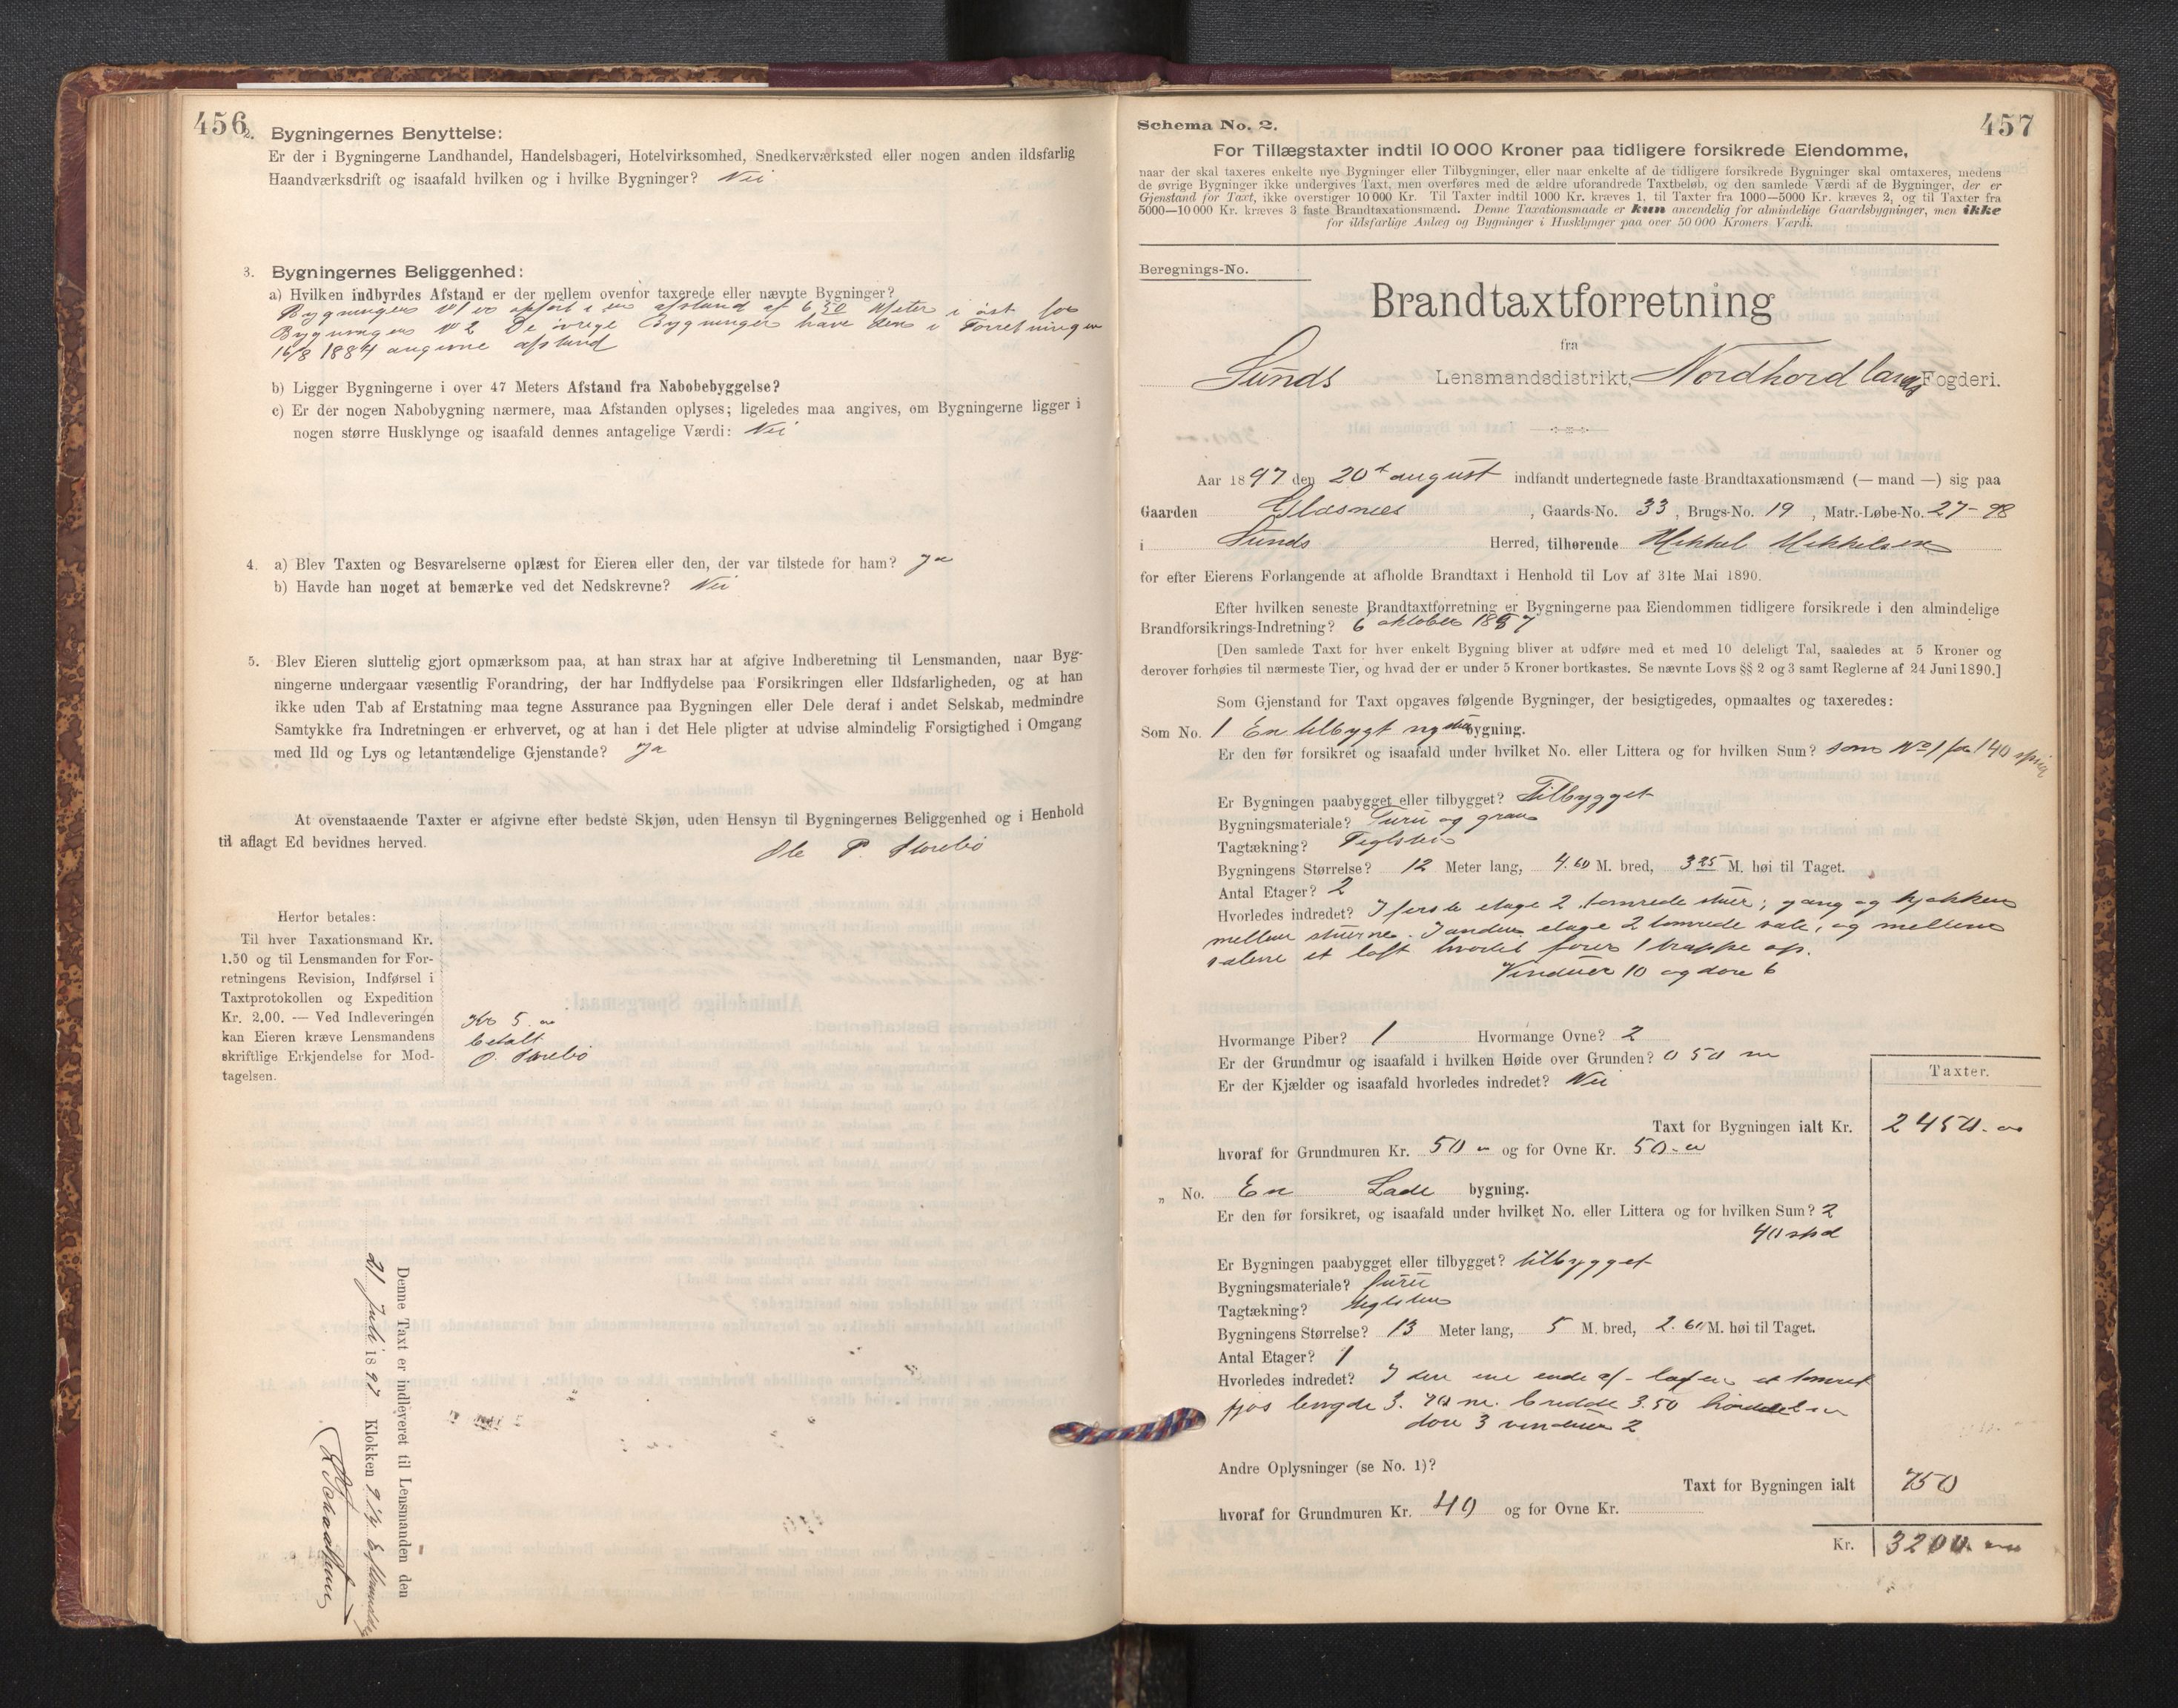 456
2. Bygningernes Benyttelse:
Er der i Bygningerne Landhandel, Handelsbageri, Hotelvirksomhed, Snedkerværksted eller nogen anden ildsfarlig
Haandværksdrift og isaafald hvilken og i hvilke Bygninger? Nei
3. Bygningernes Beliggenhed:
a) Hvilken indbyrdes Afstand er der mellem ovenfor taxerede eller nævnte Bygninger?
Bygningen No 1 er opført i en afstand af 6 50 Meter i øst for
Bygningen No 2 De øvrige Bygninger have den i Forretningen
16/8 1884 angivne afstand
b) Ligger Bygningerne i over 47 Meters Afstand fra Nabobebyggelse?
c) Er der nogen Nabobygning nærmere, maa Afstanden oplyses; ligeledes maa angives, om Bygningerne ligger i
nogen større Husklynge og isaafald dennes antagelige Værdi: Nei
4. a) Blev Taxten og Besvarelserne oplæst for Eieren eller den, der var tilstede for ham? Ja
b) Havde han noget at bemærke ved det Nedskrevne? Nei
5. Blev Eieren sluttelig gjort opmærksom paa, at han strax har at afgive Indberetning til Lensmanden, naar Byg-
ningerne undergaar væsentlig Forandring, der har Indflydelse paa Forsikringen eller Ildsfarligheden, og at han
ikke uden Tab af Erstatning maa tegne Assurance paa Bygningen eller Dele deraf i andet Selskab, medmindre
Samtykke fra Indretningen er erhvervet, og at han i det Hele pligter at udvise almindelig Forsigtighed i Omgang
med Ild og Lys og letantændelige Gjenstande? Ja
At ovenstaaende Taxter er afgivne efter bedste Skjøn, uden Hensyn til Bygningernes Beliggenhed og i Henhold
til aflagt Ed bevidnes herved.
Ole P. Storebø
Herfor betales:
Til hver Taxationsmand Kr.
1.50 og til Lensmanden for For-
retningens Revision, Indførsel i
Taxtprotokollen og Expedition
Kr. 2.00. — Ved Indleveringen
kan Eieren kræve Lensmandens
skriftlige Erkjendelse for Mod-
tagelsen.
Kr 5
betalt
O. Storebø
Denne Taxt er indleveret til Lensmanden den
21 Juli 1897 Klokken 9 1/4
457
Schema No. 2.
For Tillægstaxter indtil 10 000 Kroner paa tidligere forsikrede Eiendomme,
naar der skal taxeres enkelte nye Bygninger eller Tilbygninger, eller naar enkelte af de tidligere forsikrede Bygninger skal omtaxeres, medens
de øvrige Bygninger ikke undergives Taxt, men overføres med de ældre uforandrede Taxtbeløb, og den samlede Værdi af de Bygninger, der er
Gjenstand for Taxt, ikke overstiger 10 000 Kr. Til Taxter indtil 1000 Kr. kræves 1, til Taxter fra 1000—5000 Kr. kræves 2, og til Taxter fra
5000—10 000 Kr. kræves 3 faste Brandtaxationsmænd. Denne Taxationsmaade er kun anvendelig for almindelige Gaardsbygninger, men ikke
for ildsfarlige Anlæg og Bygninger i Husklynger paa over 50 000 Kroners Værdi.
Beregnings-No.
Brandtaxtforretning
fra
Sunds Lensmandsdistrikt, Nordhordlands Fogderi.
Aar 1897 den 20de august indfandt undertegnede faste Brandtaxationsmænd (— mand —) sig paa
Gaarden Glæsnes, Gaards-No. 33, Brugs-No. 19, Matr.-Løbe-No. 27-98
i Sunds Herred, tilhørende Mikkel Mikkelsen
for efter Eierens Forlangende at afholde Brandtaxt i Henhold til Lov af 31te Mai 1890.
Efter hvilken seneste Brandtaxtforretning er Bygningerne paa Eiendommen tidligere forsikrede i den almindelige
Brandforsikrings-Indretning? 6 oktober 1887
[Den samlede Taxt for hver enkelt Bygning bliver at udføre med et med 10 deleligt Tal, saaledes at 5 Kroner og
derover forhøies til nærmeste Tier, og hvad der er under 5 Kroner bortkastes. Se nævnte Lovs §§ 2 og 3 samt Reglerne af 24 Juni 1890.]
Som Gjenstand for Taxt opgaves følgende Bygninger, der besigtigedes, opmaaltes og taxeredes:
Som No. 1 En tilbygt ny stue bygning.
Er den før forsikret og isaafald under hvilket No. eller Littera og for hvilken Sum? som No 1 for 140
Er Bygningen paabygget eller tilbygget? Tilbygget
Bygningsmateriale? Furu og gran
Tagtækning? Teglsten
Bygningens Størrelse? 12 Meter lang, 4.60 M. bred, 3 25 M. høi til Taget.
Antal Etager? 2
Hvorledes indredet? I første etage 2 tømrede stuer; gang og kjøkken
mellem stuerne. I anden etage 2 tømrede sale, og mellem
salene et loft hvortil fører 1 trappe op.
Vinduer 10 og døre 6
Hvormange Piber? 1 Hvormange Ovne? 2
Er der Grundmur og isaafald i hvilken Høide over Grunden? 0 50 m
Er der Kjælder og isaafald hvorledes indredet? Nei
Taxter.
Taxt for Bygningen ialt Kr. 2450.
hvoraf for Grundmuren Kr. 50 og for Ovne Kr. 50
„ No. En Lade bygning.
Er den før forsikret, og isaafald under hvilket No. eller Littera og for hvilken Sum? 2
40 spd
Er Bygningen paabygget eller tilbygget? tilbygget
Bygningsmateriale? furu
Tagtækning? teglsten
Bygningens Størrelse? 13 Meter lang, 5 M. bred, 2.60 M. høi til Taget.
Antal Etager? 1
Hvorledes indredet? I den ene ende af laden et tømret
fjøs længde 3.70 m. bredde 3.50 høide 2 m
døre 3 vinduer 2
Andre Oplysninger (se No. 1)?
Taxt for Bygningen ialt 750
hvoraf for Grundmuren Kr. 40 og for Ovne Kr.
Kr. 3200.